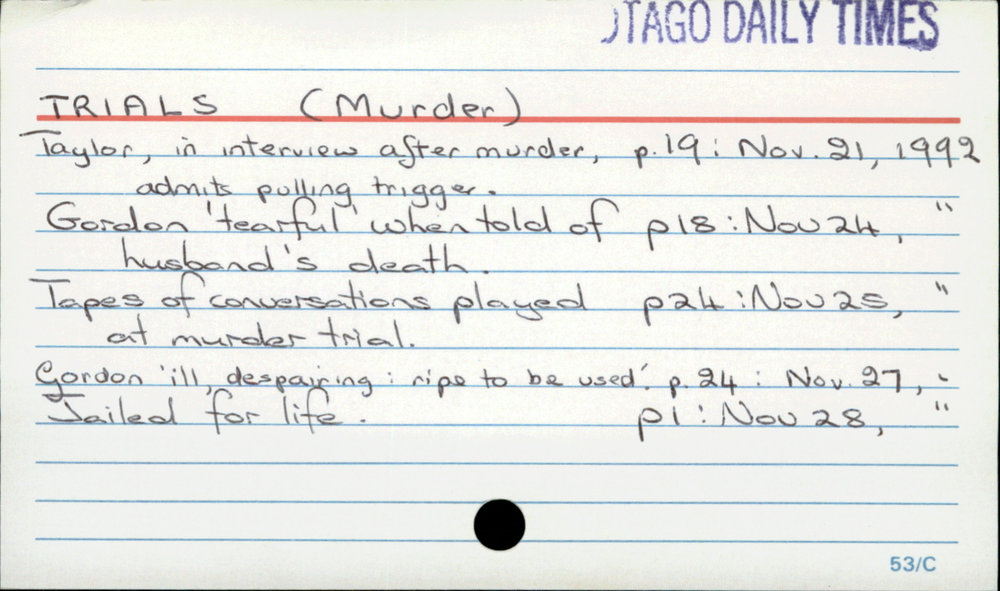 OTAGO DAILY TIMES
TRIALS (Murder)
Taylor, in interview after murder, p.19: Nov. 21, 1992
admits pulling trigger.
Gordon 'tearful' when told of p18: Nov 24, "
husband's death.
Tapes of conversations played p24: Nov 25, "
at murder trial.
Gordon 'ill, despairing: ripe to be used'. p. 24: Nov. 27, "
Jailed for life. p1: Nov 28, "
53/C